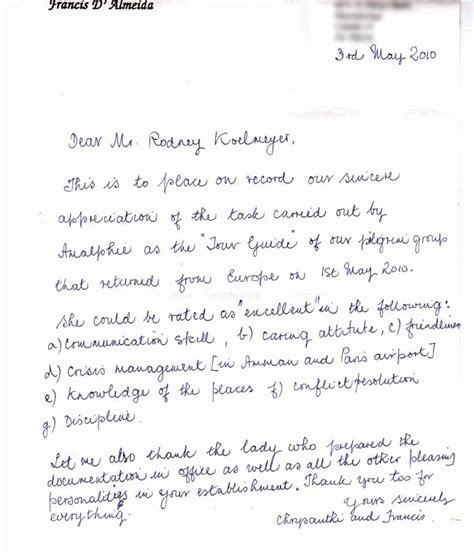 Francis D'Almeida
3rd May 2010
Dear Mr. Rodney Koelmeyer,
This is to place on record our sincere
appreciation of the task carried out by
Analphie as the "Tour Guide" of our pilgrim group
that returned from Europe on 1st May 2010.
She could be rated as "excellent" in the following:
a) Communication skill, b) caring attitute, c) friendliness
d) Crisis management [in Amman and Paris airport]
e) Knowledge of the places f) conflict resolution
g) Discipline.
Let me also thank the lady who prepared the
documentation in office as well as all the other pleasing
personalities in your establishment. Thank you too for
everything.
Yours sincerely
Chrysanthi and Francis.